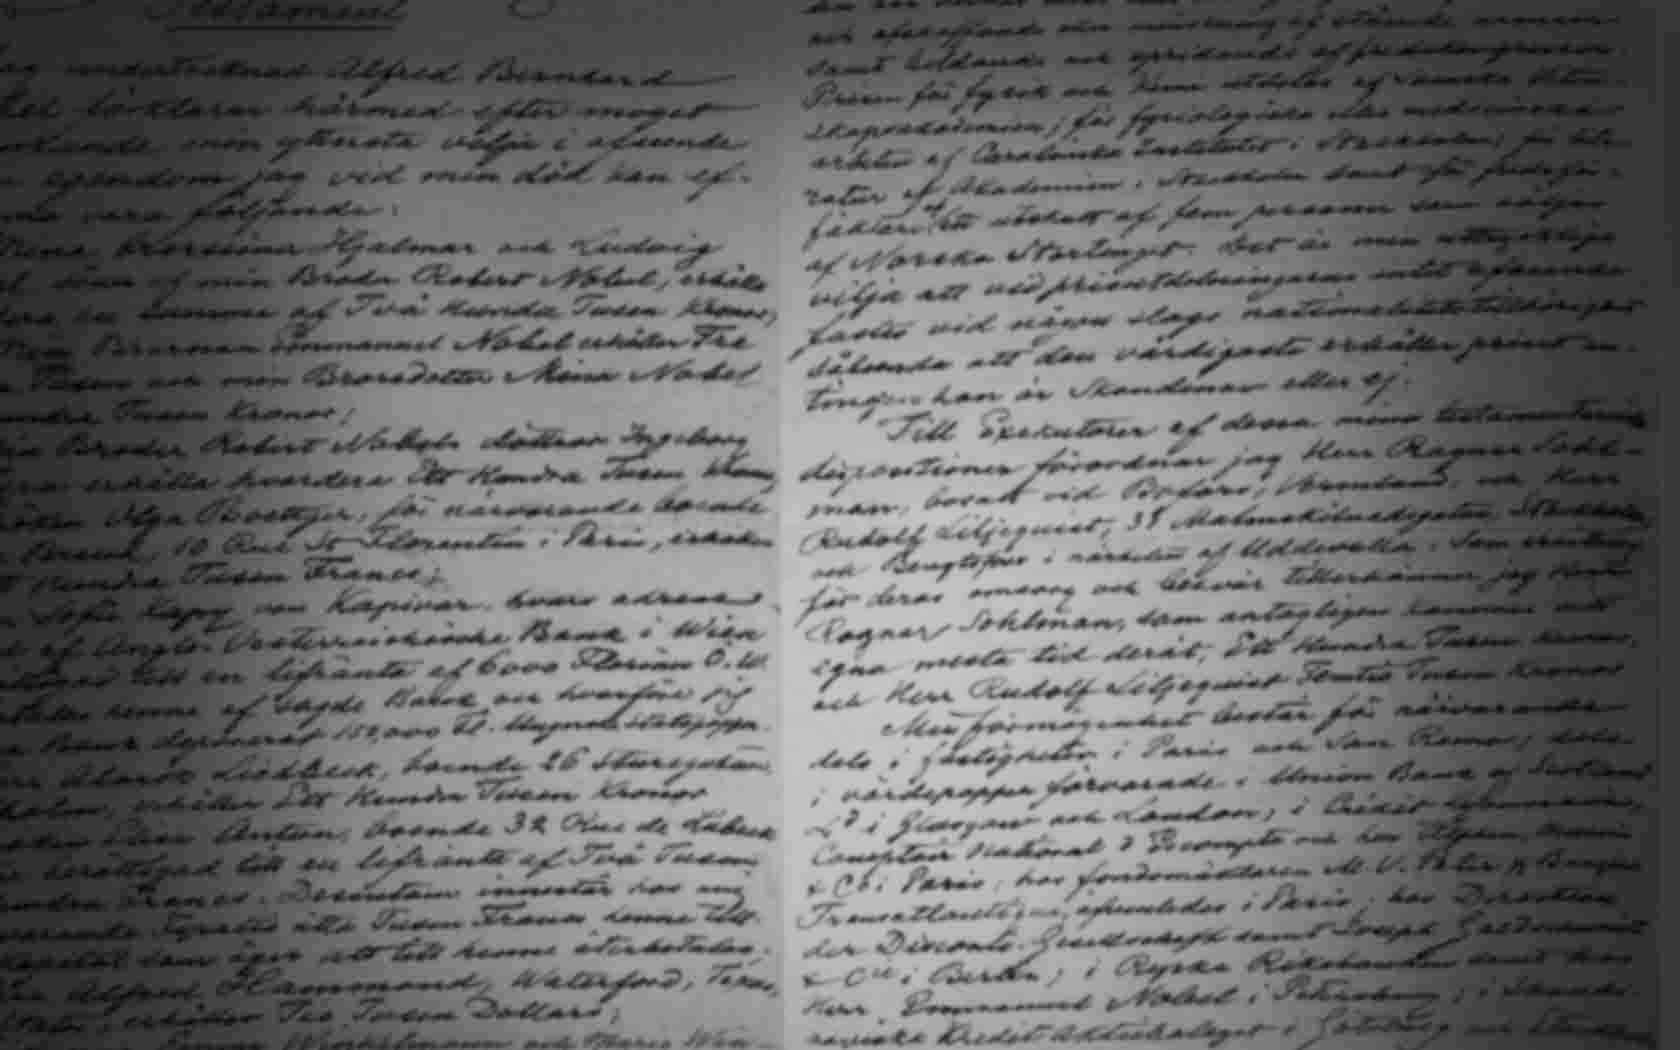 Testament
undertecknad Alfred Bernhard
förklarar härmed efter moget
min yttersta vilja i afseende
egendom jag vid min död kan ef-
vara följande:
Brorsöner Hjalmar och Ludvig
söner af min Broder Robert Nobel, erhålla
en summa af Två Hundra Tusen Kronor;
Min Brorson Emmanuel Nobel erhåller Tre
Tusen och min Brorsdotter Mina Nobel
Tusen Kronor;
Min Broder Robert Nobels döttrar Ingeborg
erhålla hvardera Ett Hundra Tusen Kronor
Olga Boettger, för närvarande boende
10 Rue St Florentin i Paris, erhåller
Hundra Tusen Francs;
Sofie Kapy von Kapivar, hvars adress
af Anglo-Oesterreichische Bank i Wien
till en lifränta af 6000 Florins Ö.W.
henne af sagde Bank och hvarföre jag
Bank deponerat 150,000 Fl. i Ungerska statspapper.
Alarik Liedbeck, boende 26 Sturegatan,
erhåller Ett Hundra Tusen Kronor
Elise Antun, boende 32 Rue de Lubeck
berättigad till en lifränta af Två Tusen
Francs. Dessutom innestår hos mig
Fyratio åtta Tusen Francs henne till-
kapital som äger att till henne återbetalas;
Alfred Hammond, Waterford, Texas,
erhåller Tio Tusen Dollars;
Winkelmann och Marie Win-
och afskaffande eller minskning af stående armeer
samt bildande och spridande af fredskongresser.
Prisen för fysik och kemi utdelas af Svenska Veten-
skapsakademien; för fysiologiska eller medicinska
arbeten af Carolinska Institutet i Stockholm; för lite-
ratur af Akademien i Stockholm samt för fredsför-
fäktare af ett utskott af fem personer som väljas
af Norska Stortinget. Det är min uttryckliga
vilja att vid prisutdelningarne intet afseende
fästes vid någon slags nationalitetstillhörighet
sålunda att den värdigaste erhåller priset an-
tingen han är Skandinav eller ej.
Till Exekutorer af dessa mina testamentariska
dispositioner förordnar jag Herr Ragnar Sohl-
man, bosatt vid Bofors, Vermland, och Herr
Rudolf Liljequist, 31 Malmskilnadsgatan, Stockholm,
och Bengtsfors i närheten af Uddevalla. Som ersättning
för deras omsorg och besvär tillerkänner jag Herr
Ragnar Sohlman, som antagligen kommer att
egna mesta tid deråt, Ett Hundra Tusen Kronor,
och Herr Rudolf Liljequist Femtio Tusen Kronor
Min förmögenhet består för närvarande
dels i fastigheter i Paris och San Remo; dels
i värdepapper förvarade i Union Bank of Scotland
Ld i Glasgow och London; i Crédit Lyonnais,
Comptoir National d'Escompte och hos Alphen, Messin
& Co i Paris; hos fondsmäklaren M.V. Peter & Banque
Transatlantique, afvenledes i Paris; hos Direction
der Disconto Gesellschaft samt Joseph Goldschmidt
& Cie i Berlin; i Ryska Riksbanken samt hos
Herr Emmanuel Nobel i Petersburg; i Skandi-
naviska Kredit Aktiebolaget i Göteborg och